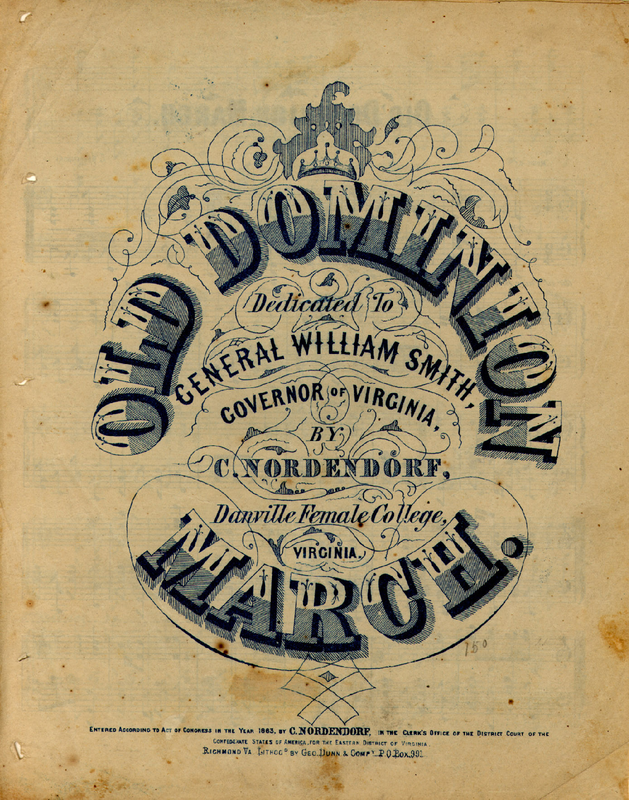 OLD DOMINION
Dedicated To
GENERAL WILLIAM SMITH,
GOVERNOR OF VIRGINIA,
BY
C. NORDENDORF,
Danville Female College,
VIRGINIA.
MARCH.
150
ENTERED ACCORDING TO ACT OF CONGRESS IN THE YEAR 1863, BY C. NORDENDORF, IN THE CLERK'S OFFICE OF THE DISTRICT COURT OF THE
CONFEDERATE STATES OF AMERICA, FOR THE EASTERN DISTRICT OF VIRGINIA
RICHMOND VA LITHOGD BY GEO. DUNN & COMPY. P.O. BOX. 991.